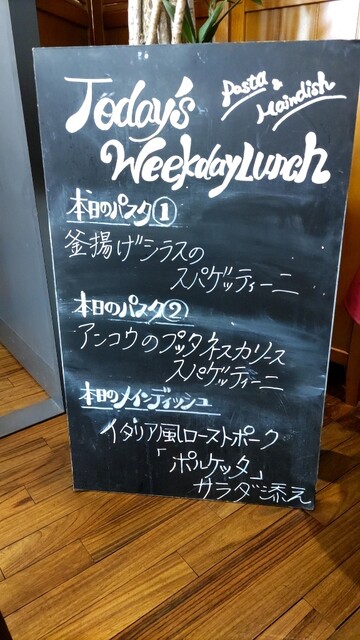 Today's
Pasta & Maindish
Weekday Lunch
本日のパスタ①
釜揚げシラスの
スパゲッティーニ
本日のパスタ②
アンコウのプッタネスカソース
スパゲッティーニ
本日のメインディッシュ
イタリア風ローストポーク
「ポルケッタ」
サラダ添え